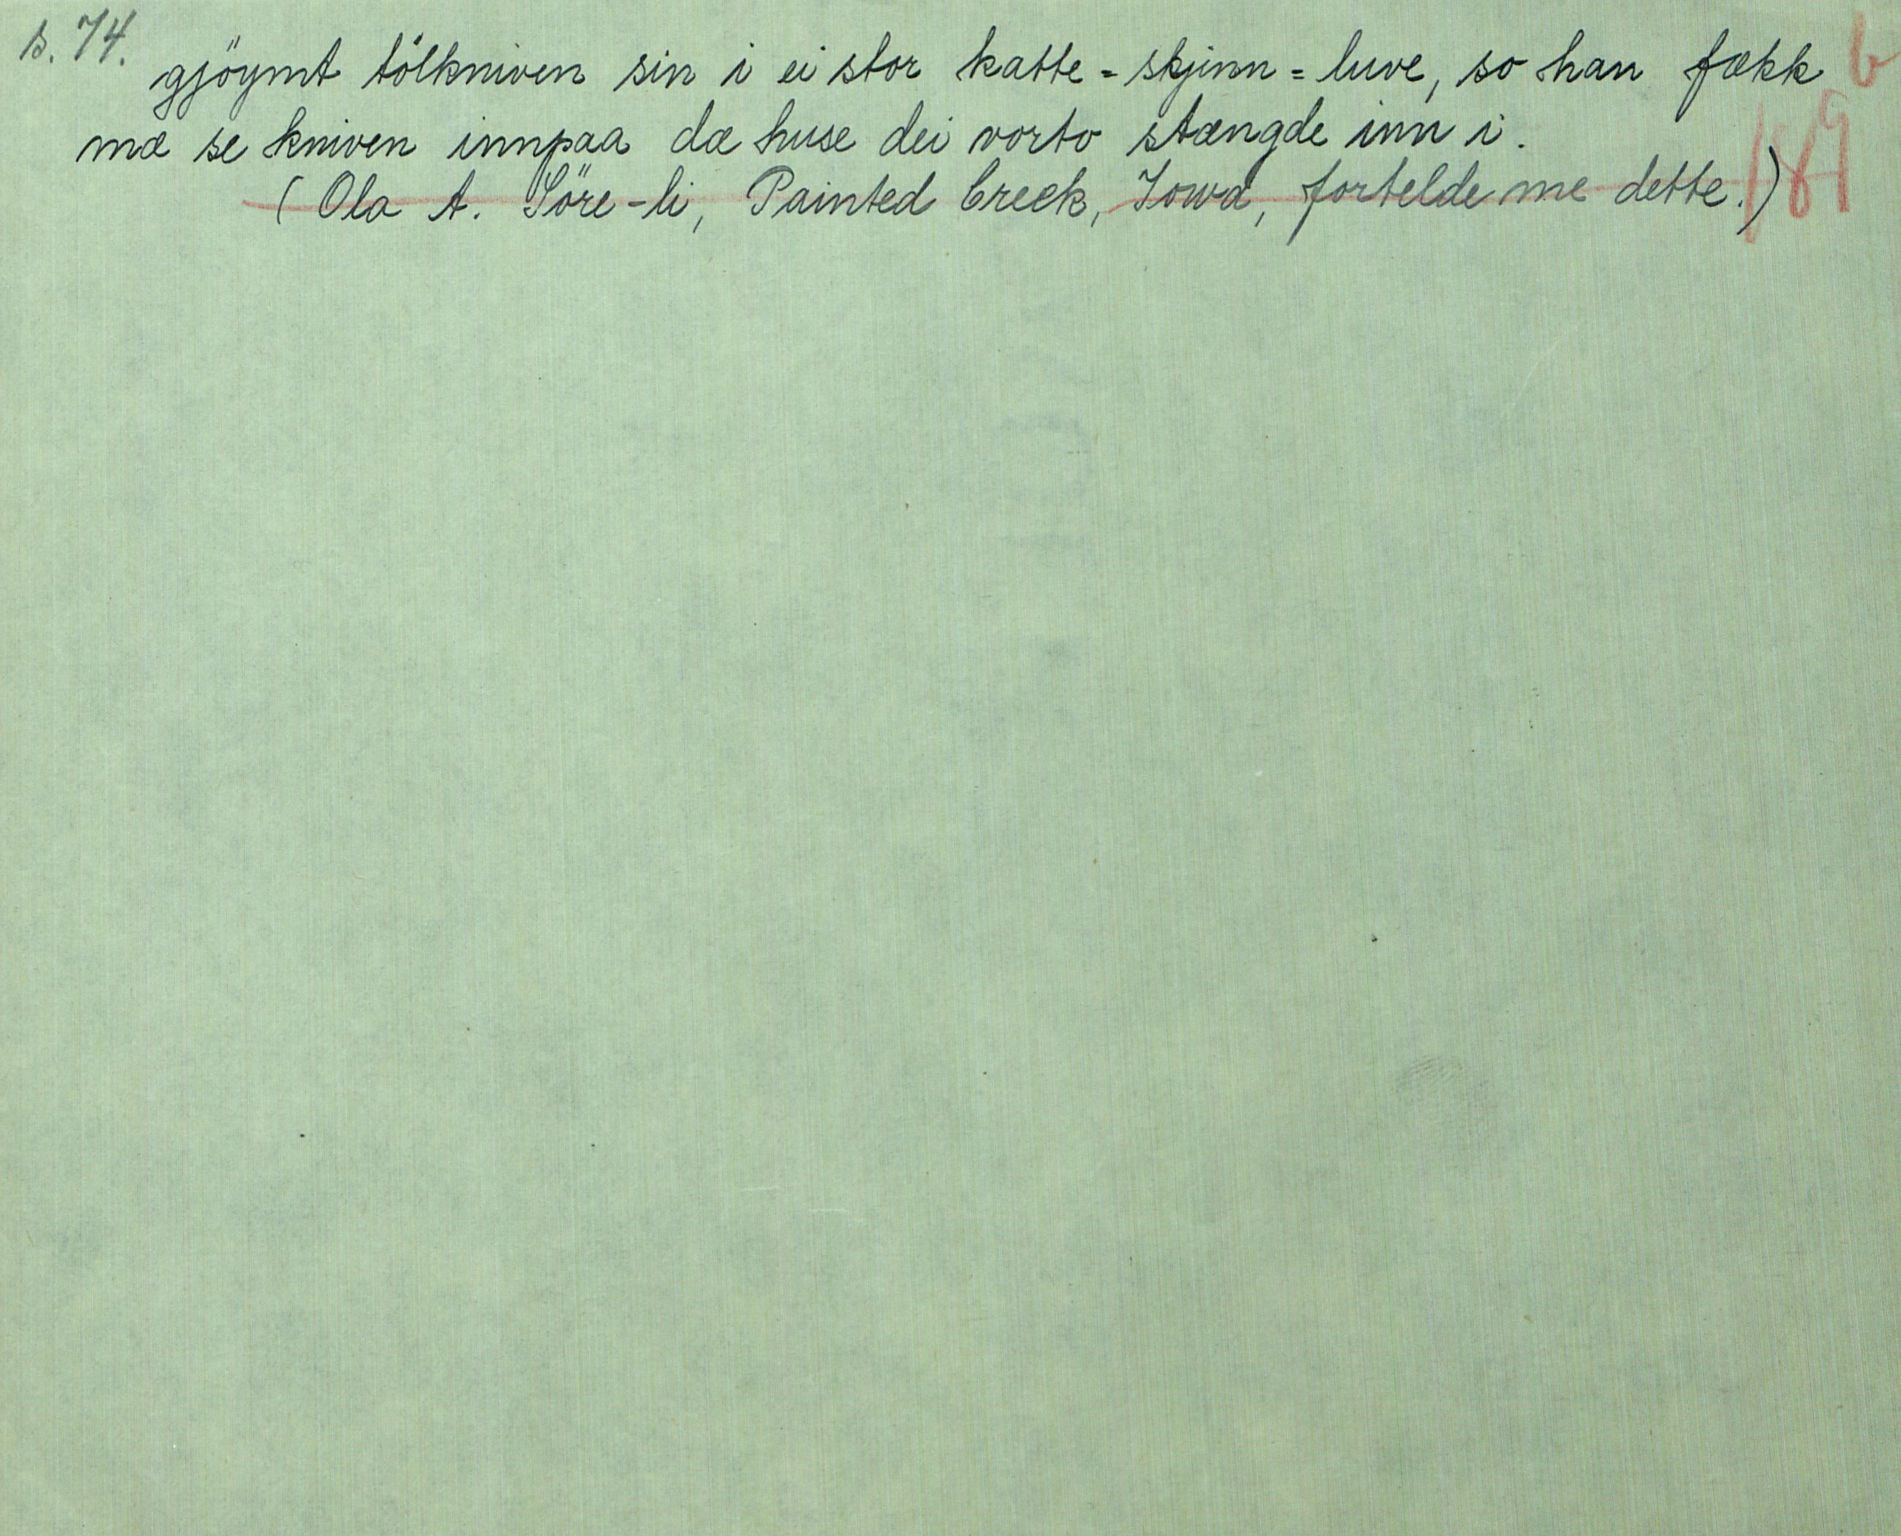 s. 74.
gjöymt tölkniven sin i ei stor katte-skjinn-luve, so han fækk
mæ se kniven innpaa dæ huse dei vorto stængde inn i.
(Ola A. Söre-li, Painted Creek, Iowa, fortelde me dette.)
b
189